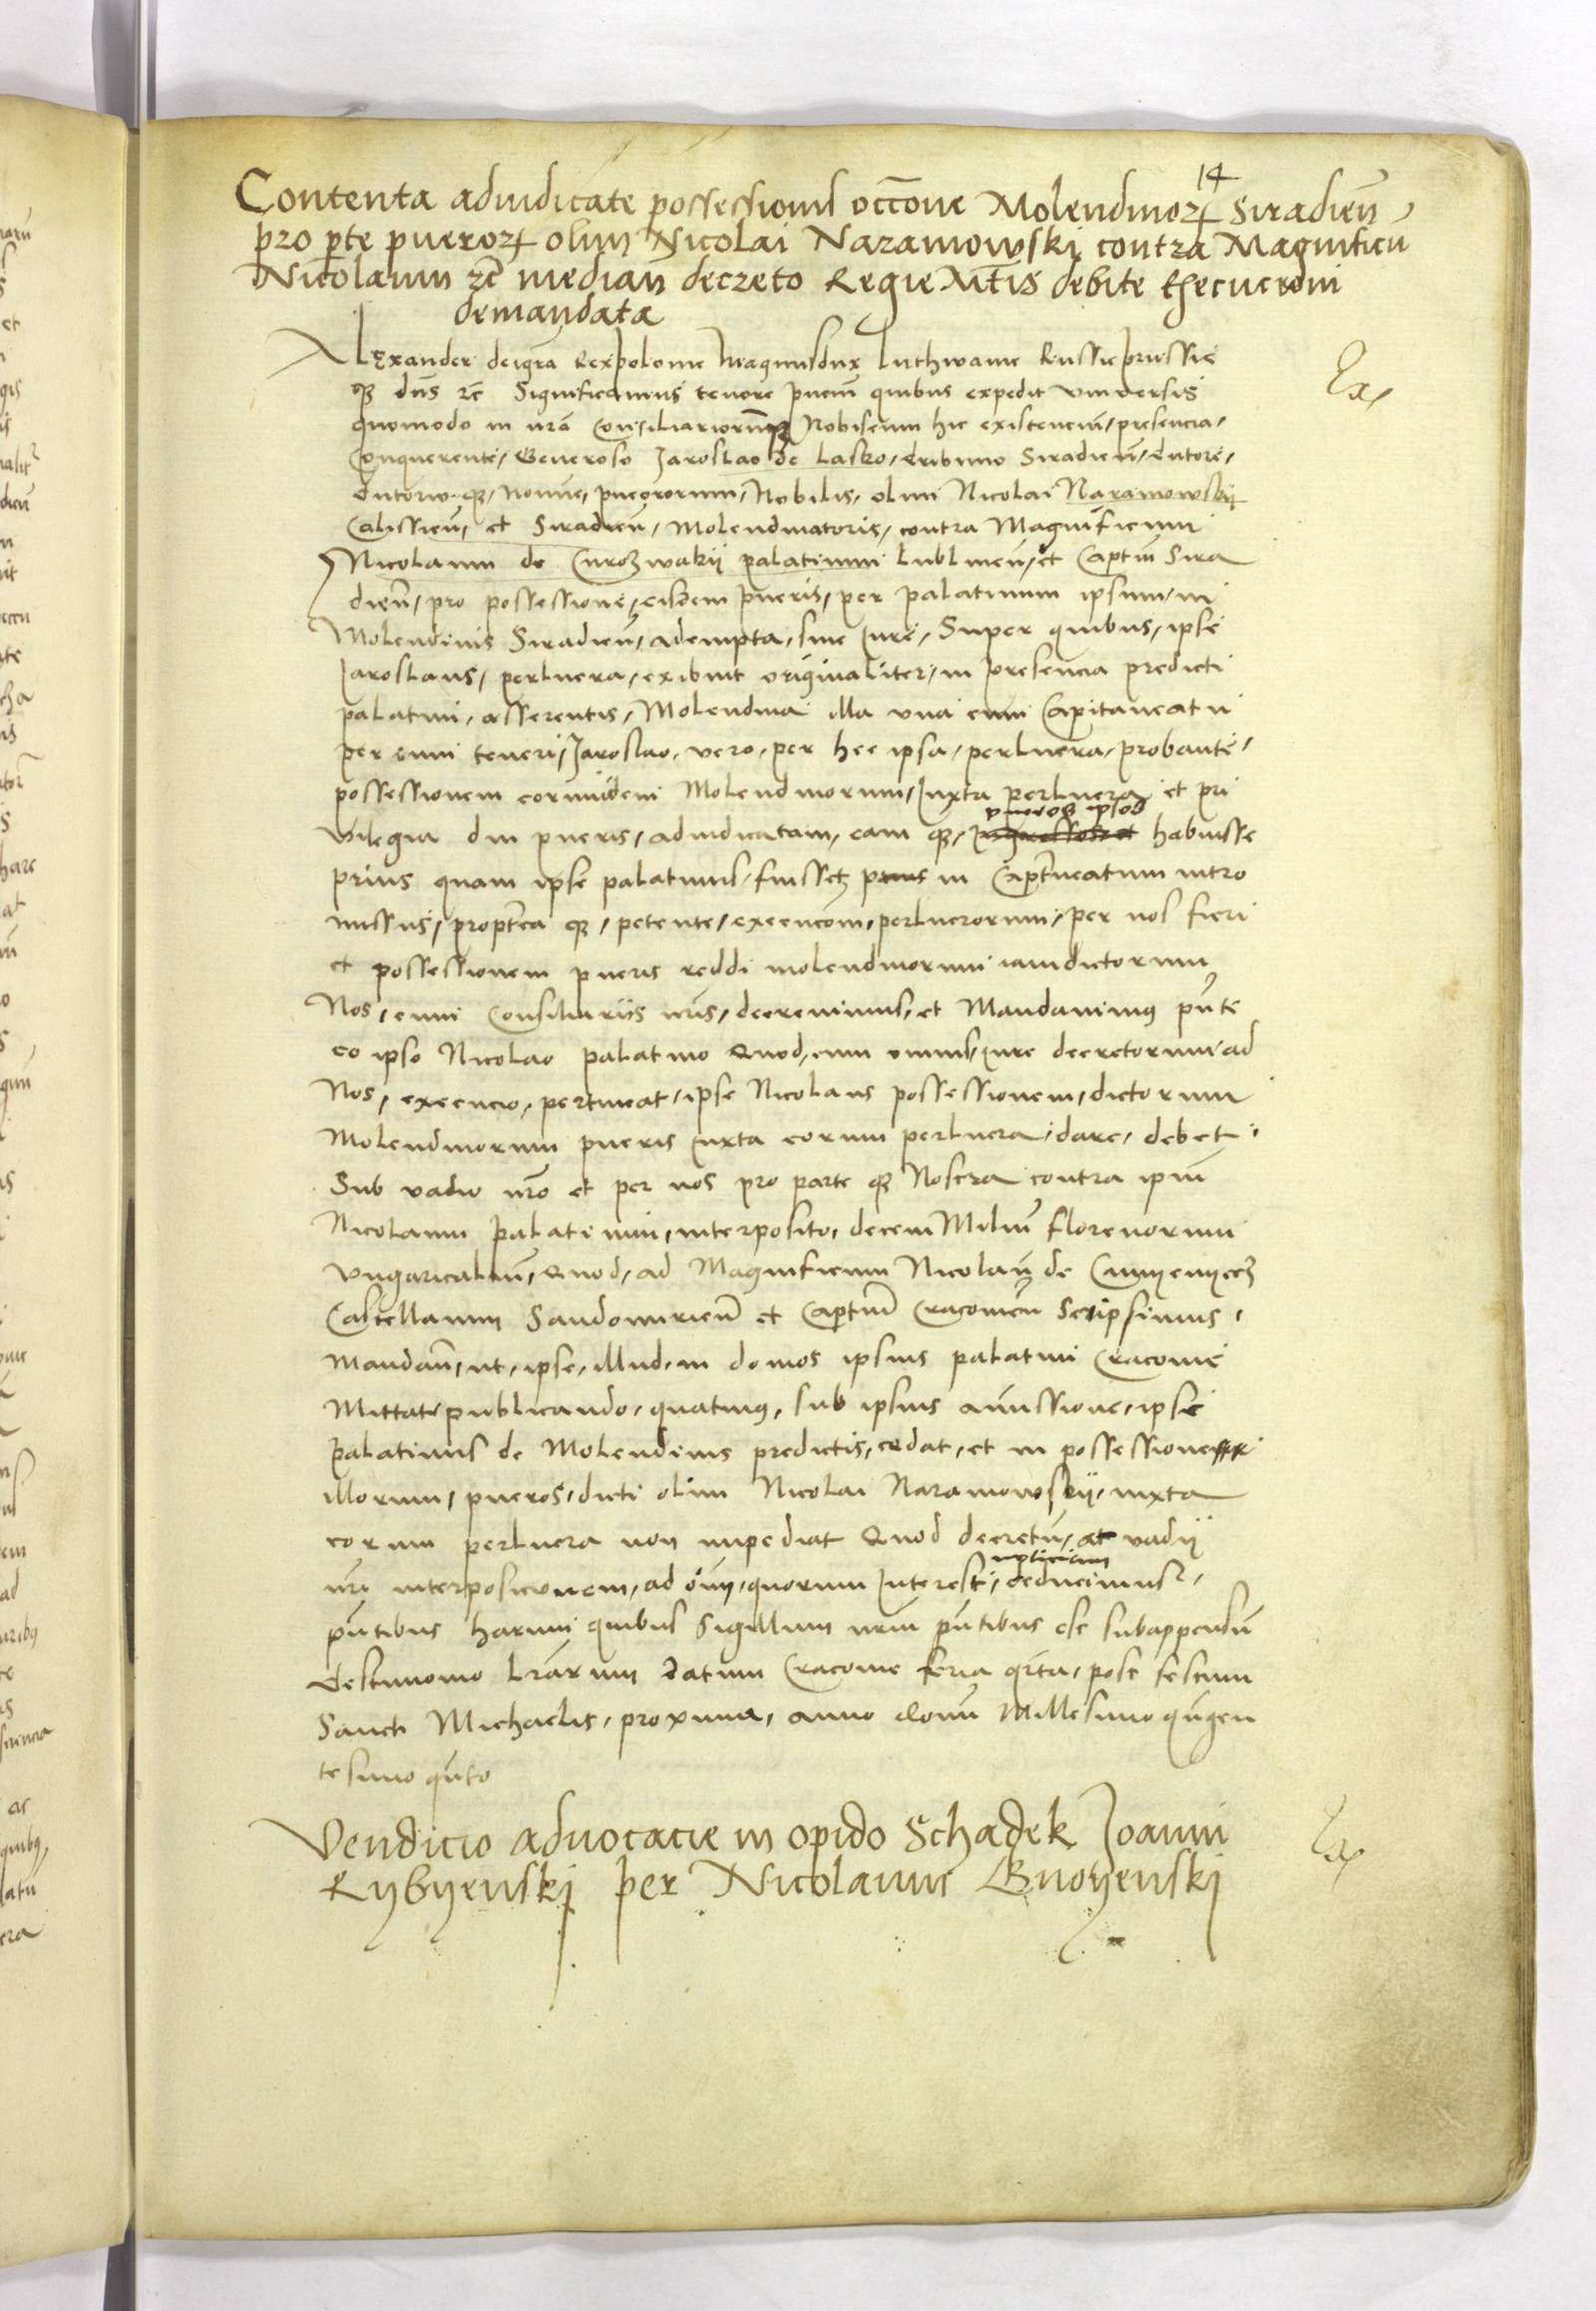 14
Contenta adiudicate possessionis occõne Molendinoꝝ Siradien̄
pro p̄te pueroꝝ olim Nicolai Naramowski contra Magnificū
Nicolaum ꝛc̄ median̄ decreto Regie M̄tis debite Execucioni
demandata
Alexander dei gr̄a Rex polonie Magnusdux Luthwanie Russie prussie
Ex
qꝫ dn̄s ꝛc̄ Significamus tenore pn̄cium quibus expedit vniversis
quomodo in nr̄a Consiliariorumqꝫ Nobiscum hic existencium, presencia,
Conquerente, Generoso Jaroslao de Lasko, tribuno Siradien̄, tutore,
tutorio qꝫ, nomine, puerorum, Nobilis, olim Nicolai Naramowskij
Calissien̄, et Siradien̄, Molendinatoris, contra Magnificum
Nicolaum de Curozwakij palatinum lublinen̄, et Captm̄ Sira
dien̄, pro possessione, eisdem pueris, per palatinum ipsum, in
Molendinis Siradien̄, adempta, sine Jure, Super quibus, ipse
Jaroslaus, perlucra, exibuit originaliter, in presencia predicti
palatini, asserentis, Molendina illa vna cum Capitaneatu
per eum teneri, Jaroslao, vero, per hec ipsa, perlucra, probante,
possessionem eorundem Molendinorum, Juxta perlucra et pri
pueros ipsos
vilegia diu pueris, adiudicatam, eam qꝫ, habuisse
prius quam ipse palatinus, fuisset in Captneatum intro
missus, propterea qꝫ, petente, execucōem, perlucrorum, per nos fieri
et possessionem pueris reddi molendinorum iamdictorum
Nos, cum Consiliariis nr̄is, decrevimus, et Mandavimus pn̄te
eo ipso Nicolao palatino Quod, cum omnis, Jure decretorum, ad
Nos, execucio, pertineat, ipse Nicolaus possessionem, dictorum
Molendinorum pueris Juxta eorum perlucra, dare, debet,
Sub vadio nr̄o et per nos pro parte qꝫ Nostra contra ipm̄
Nicolaum palatinum, interposito, decem Milium florenorum
Vngaricalium, Quod, ad Magnificum Nicolaum de Camyenyecz
Castellanum Sandomirien̄ et Captm̄ Cracovien̄ Scripsimus,
Mandan̄, ut, ipse, illud, in domos ipsius palatini Cracovie
Mittat, publicando, quatinus, sub ipsius amissione, ipse
palatinus de Molendinis predictis, cedat, et in possessione
illorum, pueros, dicti olim Nicolai Naramowskij, iuxta
eorum perlucra non impediat Quod decretum, ac vadij
noticiam
nr̄i interposicionem, ad oīm, quorum Interest, deducimus,
pn̄tibus harum quibus Sigillum nr̄m pn̄tibus est subappensū
testimonio lr̄arum datum Cracovie feria qr̄ta, post festum
Sancti Michaelis, proxima, anno domī Millesimo qn̄gen
tesimo qn̄to
Vendicio advocacie in opido Schadek Joanni
Ex
Rybyenski per Nicolaum Gnoyenski